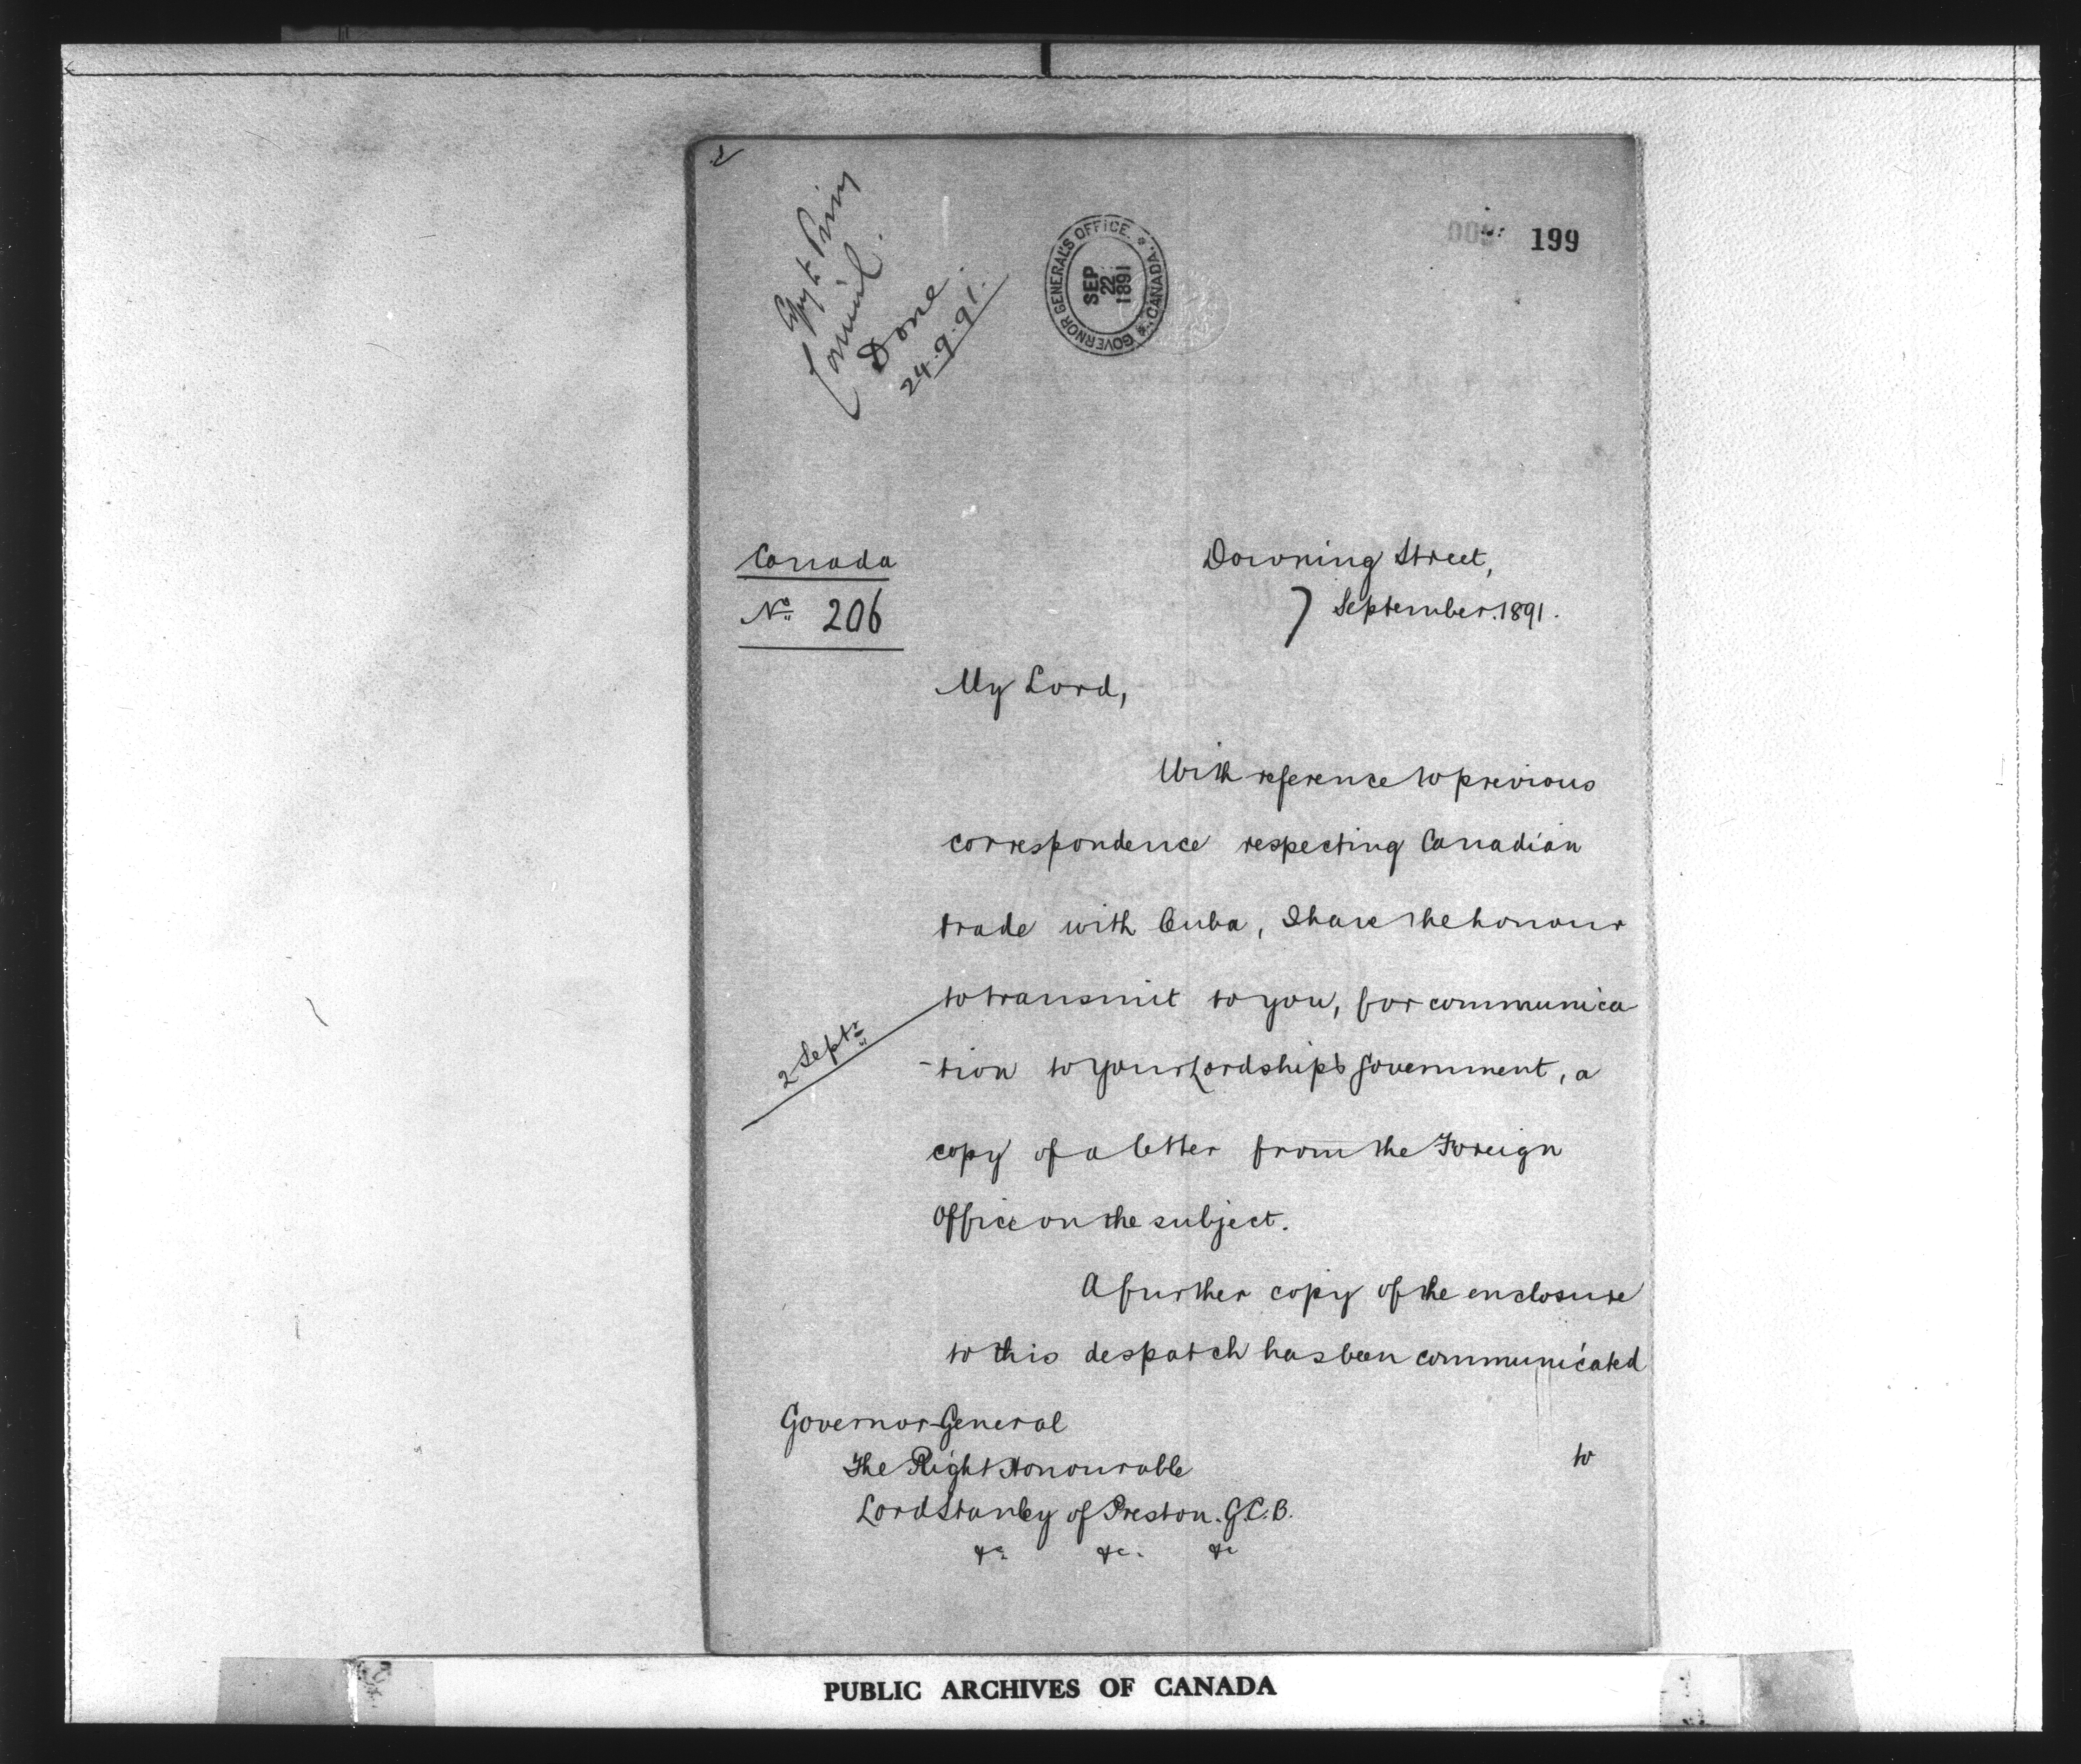 Copy to Privy
Council.
Done
24.9.91.
GOVERNOR GENERAL'S OFFICE.
* CANADA. *
SEP
22
1891
199
Canada
No. 206
Downing Street,
7 September. 1891.
My Lord,
With reference to previous
correspondence respecting Canadian
trade with Cuba, I have the honour
to transmit to you, for communica
2 Septr
-tion to Your Lordship's Government, a
copy of a letter from the Foreign
Office on the subject.
A further copy of the enclosure
to this despatch has been communicated
Governor-General
The Right Honourable
Lord Stanley of Preston. G.C.B.
&c. &c. &c
to
PUBLIC ARCHIVES OF CANADA